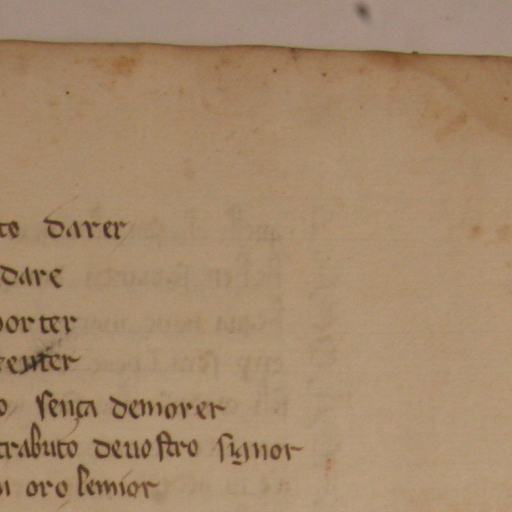 to darer
dare
porter
tenter
o sença demorer
trabuto deuostro signor
oro lemior